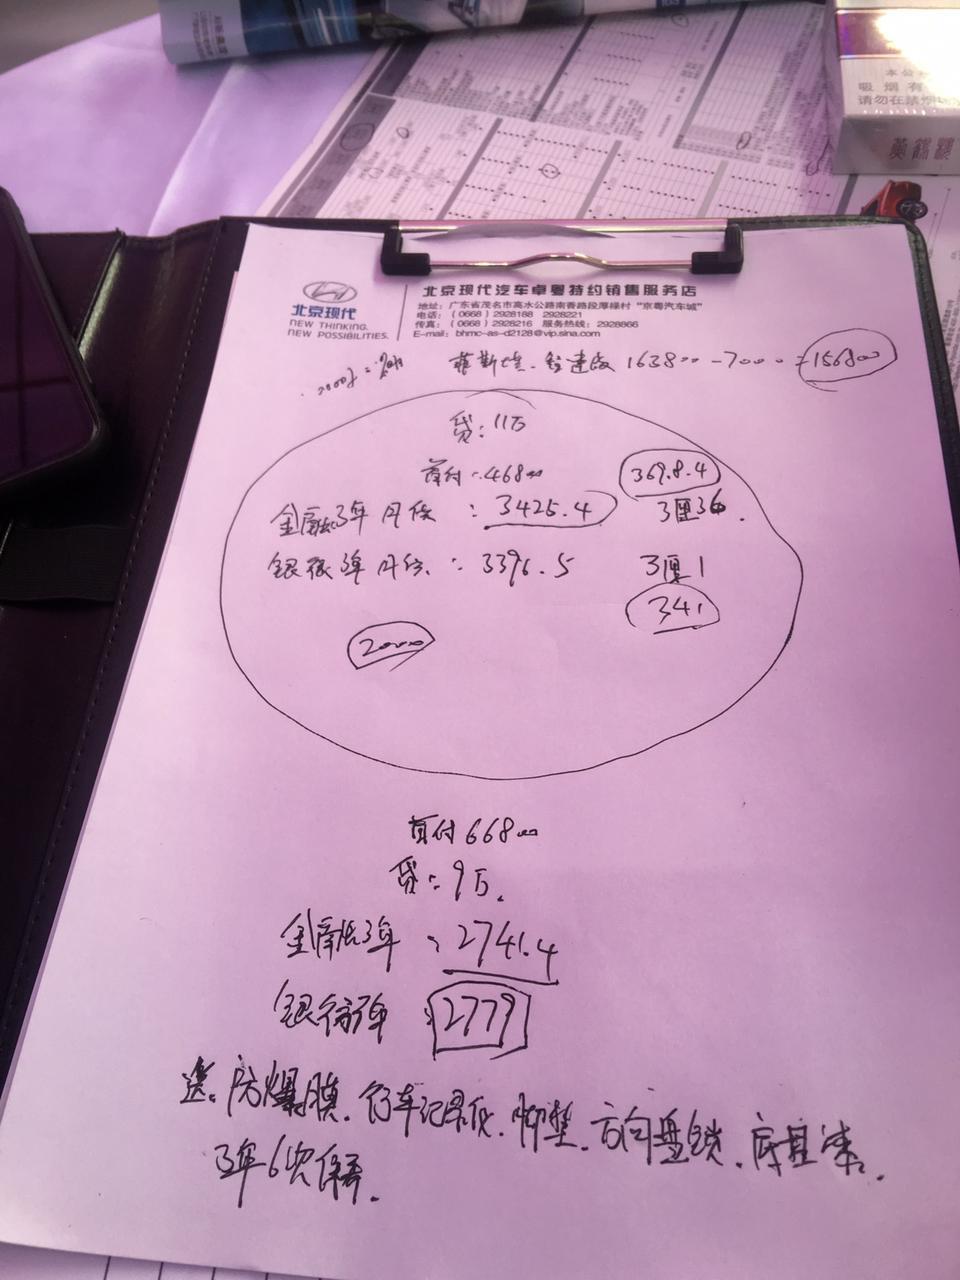 本公
吸烟有
请勿在禁烟
黄鹤楼
北京现代
NEW THINKING.
NEW POSSIBILITIES.
北京现代汽车卓粤特约销售服务店
地址：广东省茂名市高水公路南香路段厚禄村“京粤汽车城”
电话：（0668）2928188 2928221
传真：（0668）2928216 服务热线：2928866
E-mail：bhmc-as-d2128@vip.sina.com
菲斯塔. 智速版 163800-7000=156800
贷：11万
首付：46800
3698.4
金融3年月供：3425.4
3厘36.
银行3年月供：3396.5
3厘1
341
20000
首付66800
贷：9万.
金融3年：2741.4
银行3年：2779
送：防爆膜、行车记录仪、脚垫、方向盘锁、底盘漆.
3年6次保养.